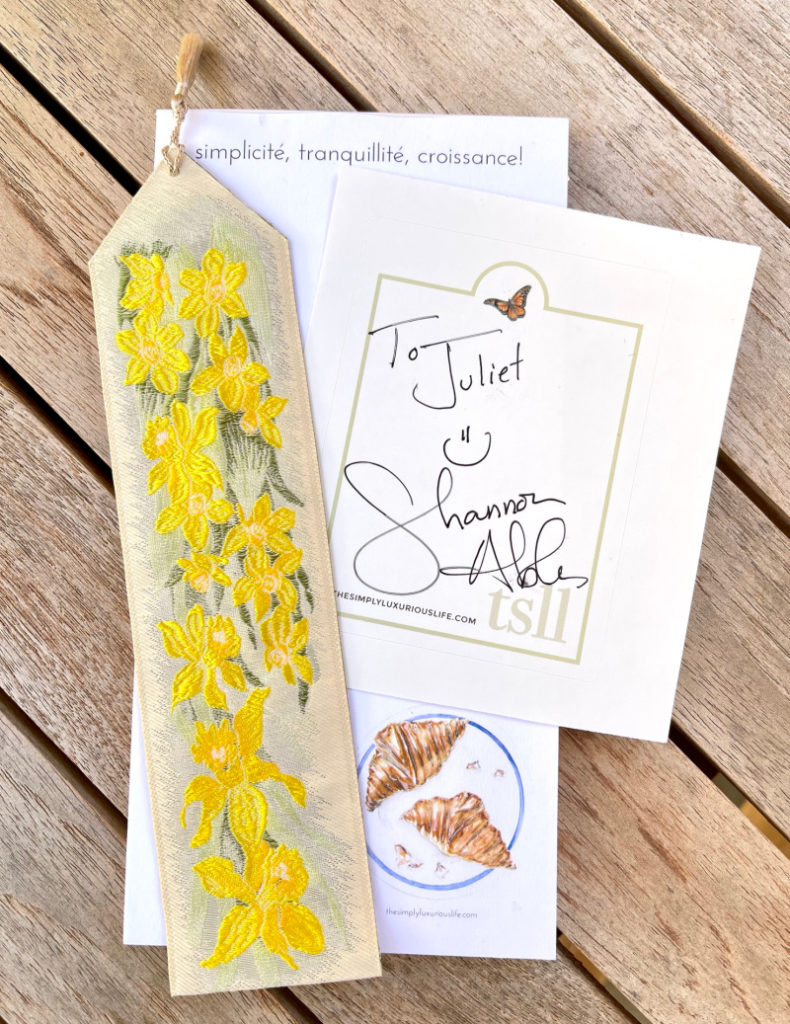 simplicité, tranquillité, croissance!
To Juliet
Shannon
Ables
THESIMPLYLUXURIOUSLIFE.COM
tsll
thesimplyluxuriouslife.com